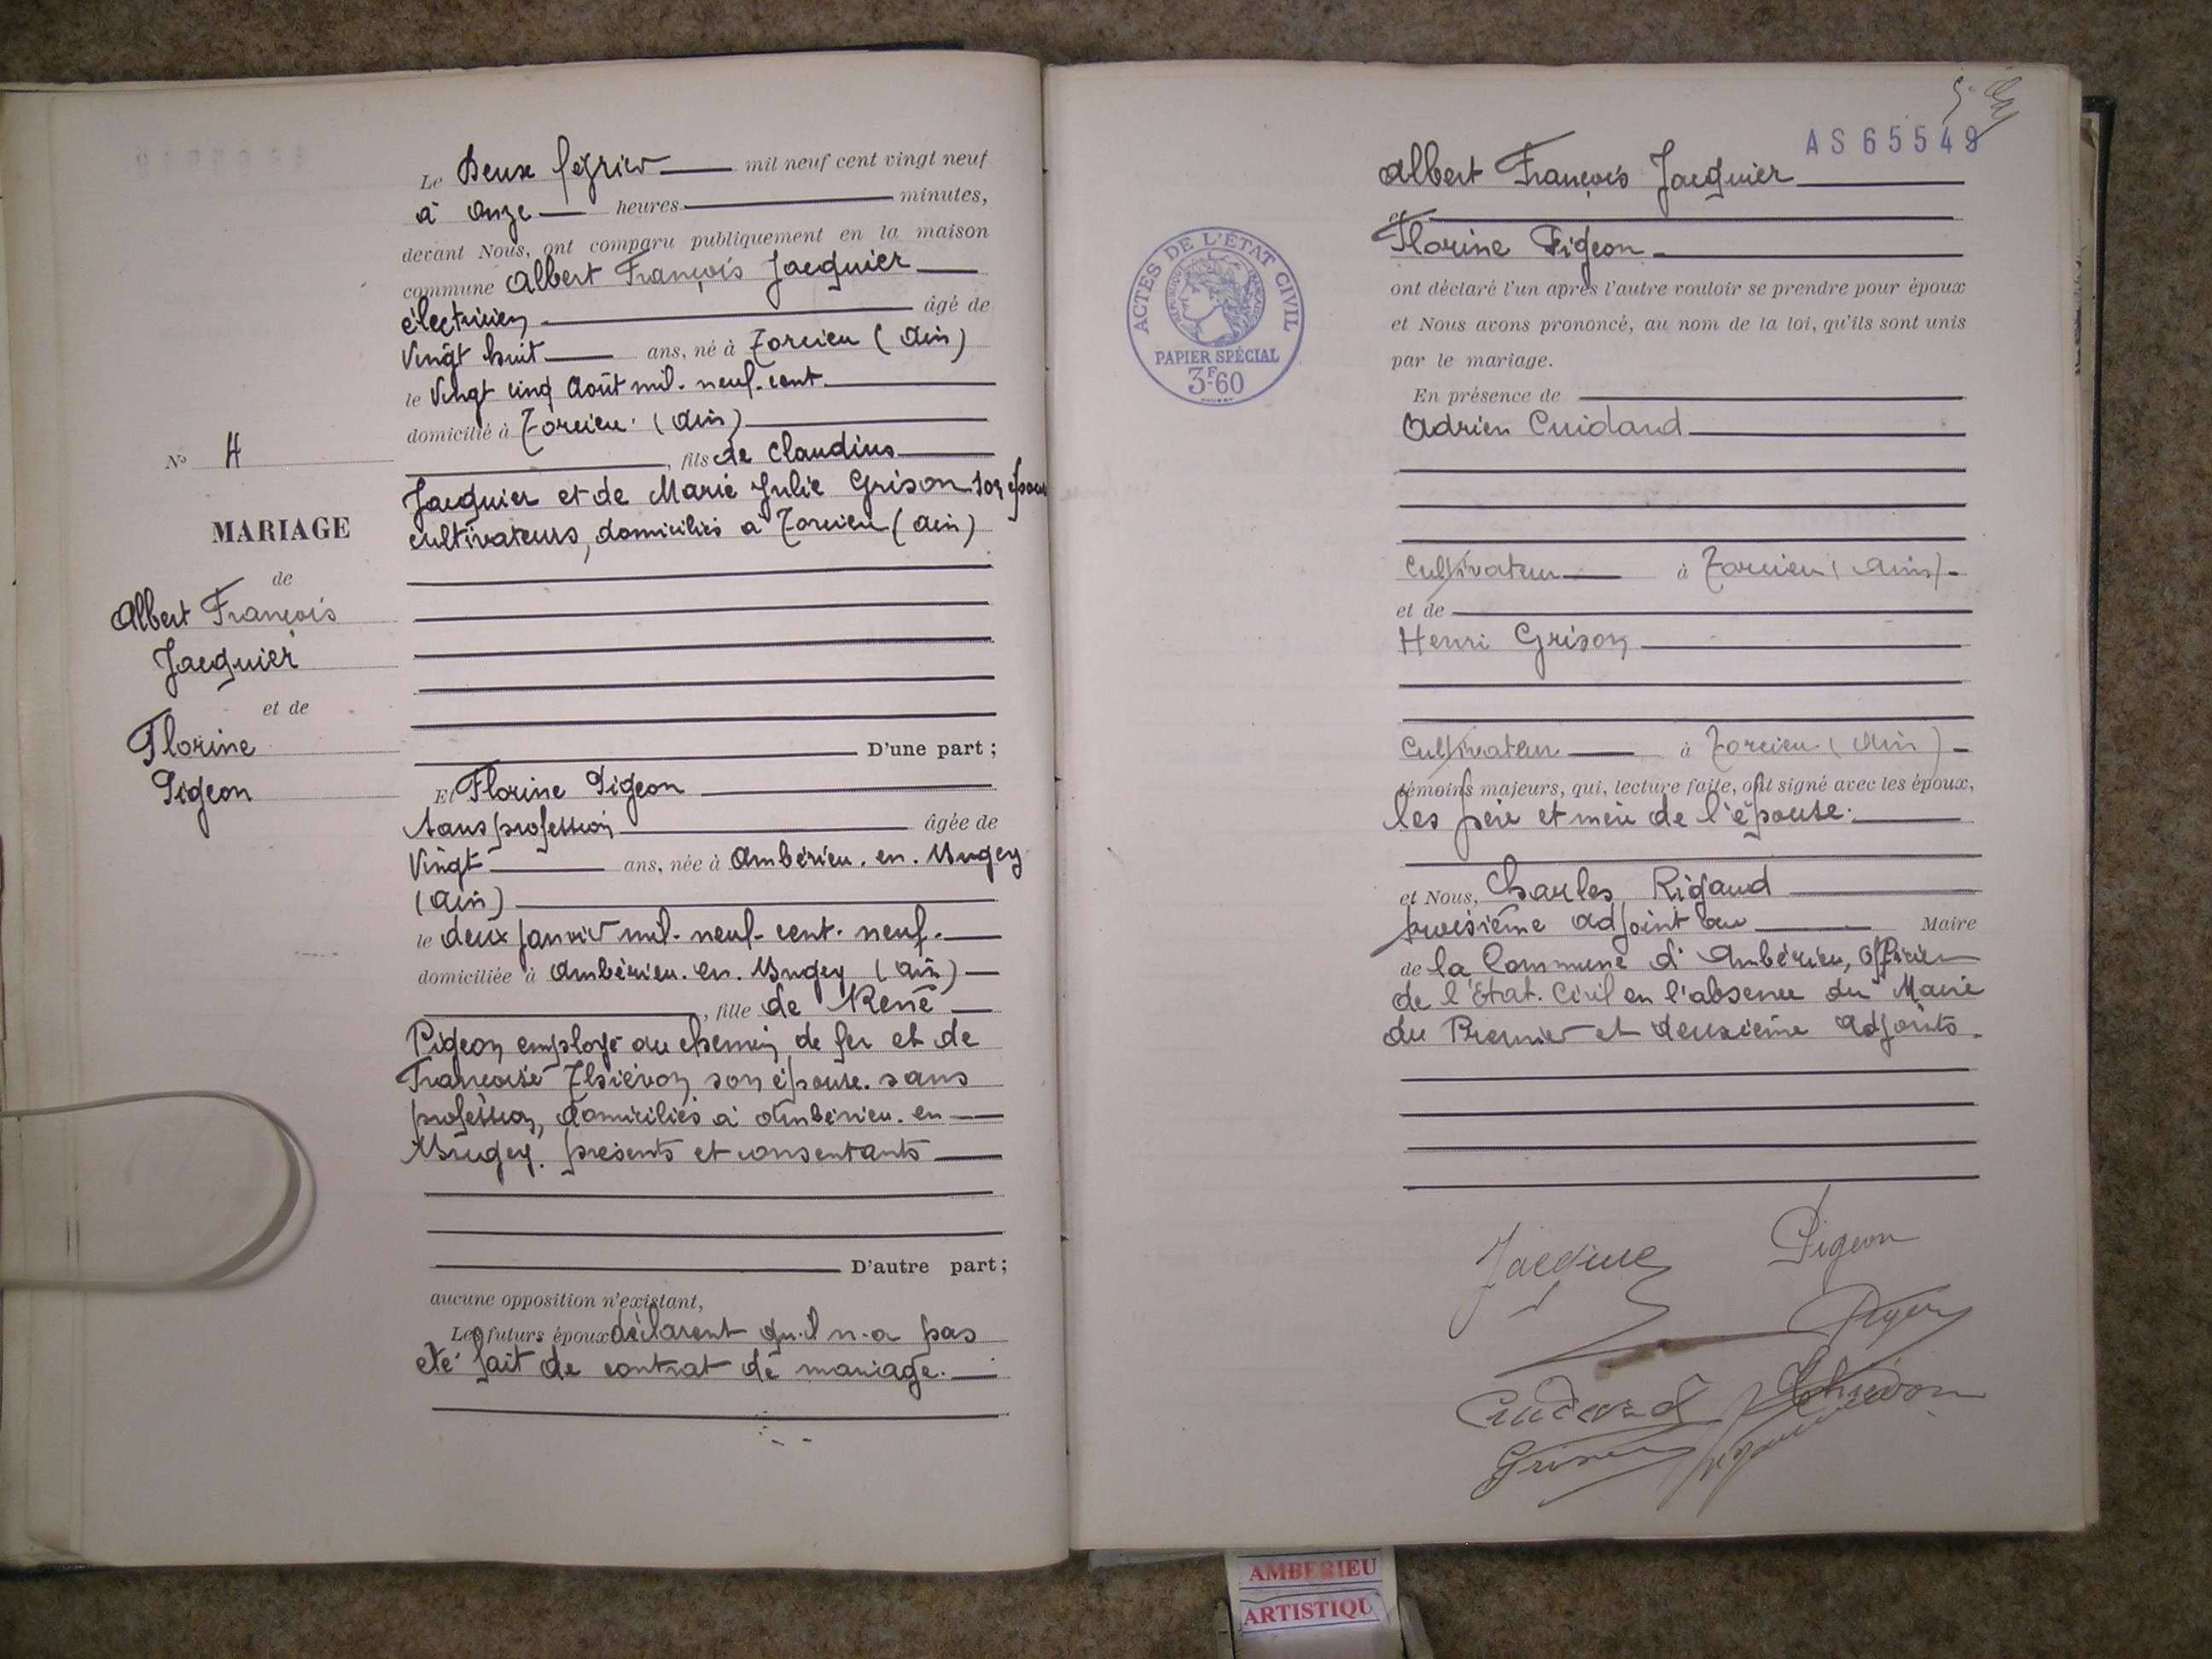 Le Deux février mil neuf cent vingt neuf
à onze heures minutes,
devant Nous, ont comparu publiquement en la maison
commune Albert François Jacquier
électricien âgé de
Vingt huit ans, né à Torcieu (Ain)
le Vingt cinq Août mil. neuf. cent.
domicilié à Torcieu. (Ain)
, fils de Claudius
Jacquier et de Marie Julie Grison son épouse
cultivateurs, domiciliés à Torcieu (Ain)
D'une part ;
No 4
MARIAGE
de
Albert François
Jacquier
et de
Florine
Pigeon
Et Florine Pigeon
sans profession âgée de
Vingt ans, née à Ambérieu. en. Bugey
(Ain)
le deux janvier mil. neuf. cent. neuf.
domiciliée à Ambérieu. en. Bugey (Ain)
, fille de René
Pigeon employé au chemin de fer et de
Françoise Thiévon son épouse. sans
profession, domiciliés à Ambérieu. en
Bugey. présents et consentants
D'autre part ;
aucune opposition n'existant,
Les futurs époux déclarent qu'il n'a pas
été fait de contrat de mariage.
AS 65549
Albert François Jacquier
et
Florine Pigeon
ACTES DE L'ÉTAT CIVIL
RÉPUBLIQUE FRANÇAISE
PAPIER SPÉCIAL
3F-60
ont déclaré l'un après l'autre vouloir se prendre pour époux
et Nous avons prononcé, au nom de la loi, qu'ils sont unis
par le mariage.
En présence de
Adrien Cuidard
Cultivateur à Torcieu (Ain)
et de
Henri Grison
Cultivateur à Torcieu (Ain)
témoins majeurs, qui, lecture faite, ont signé avec les époux,
les père et mère de l'épouse.
et Nous, Charles Rigaud
troisième adjoint au Maire
de la Commune d'Ambérieu, Officier
de l'Etat. Civil en l'absence du Maire
du Premier et deuxième Adjoints.
Jacquier
Pigeon
Pigeon
Cuidard
Thiévon
Grison
Rigaud
AMBERIEU
ARTISTIQU